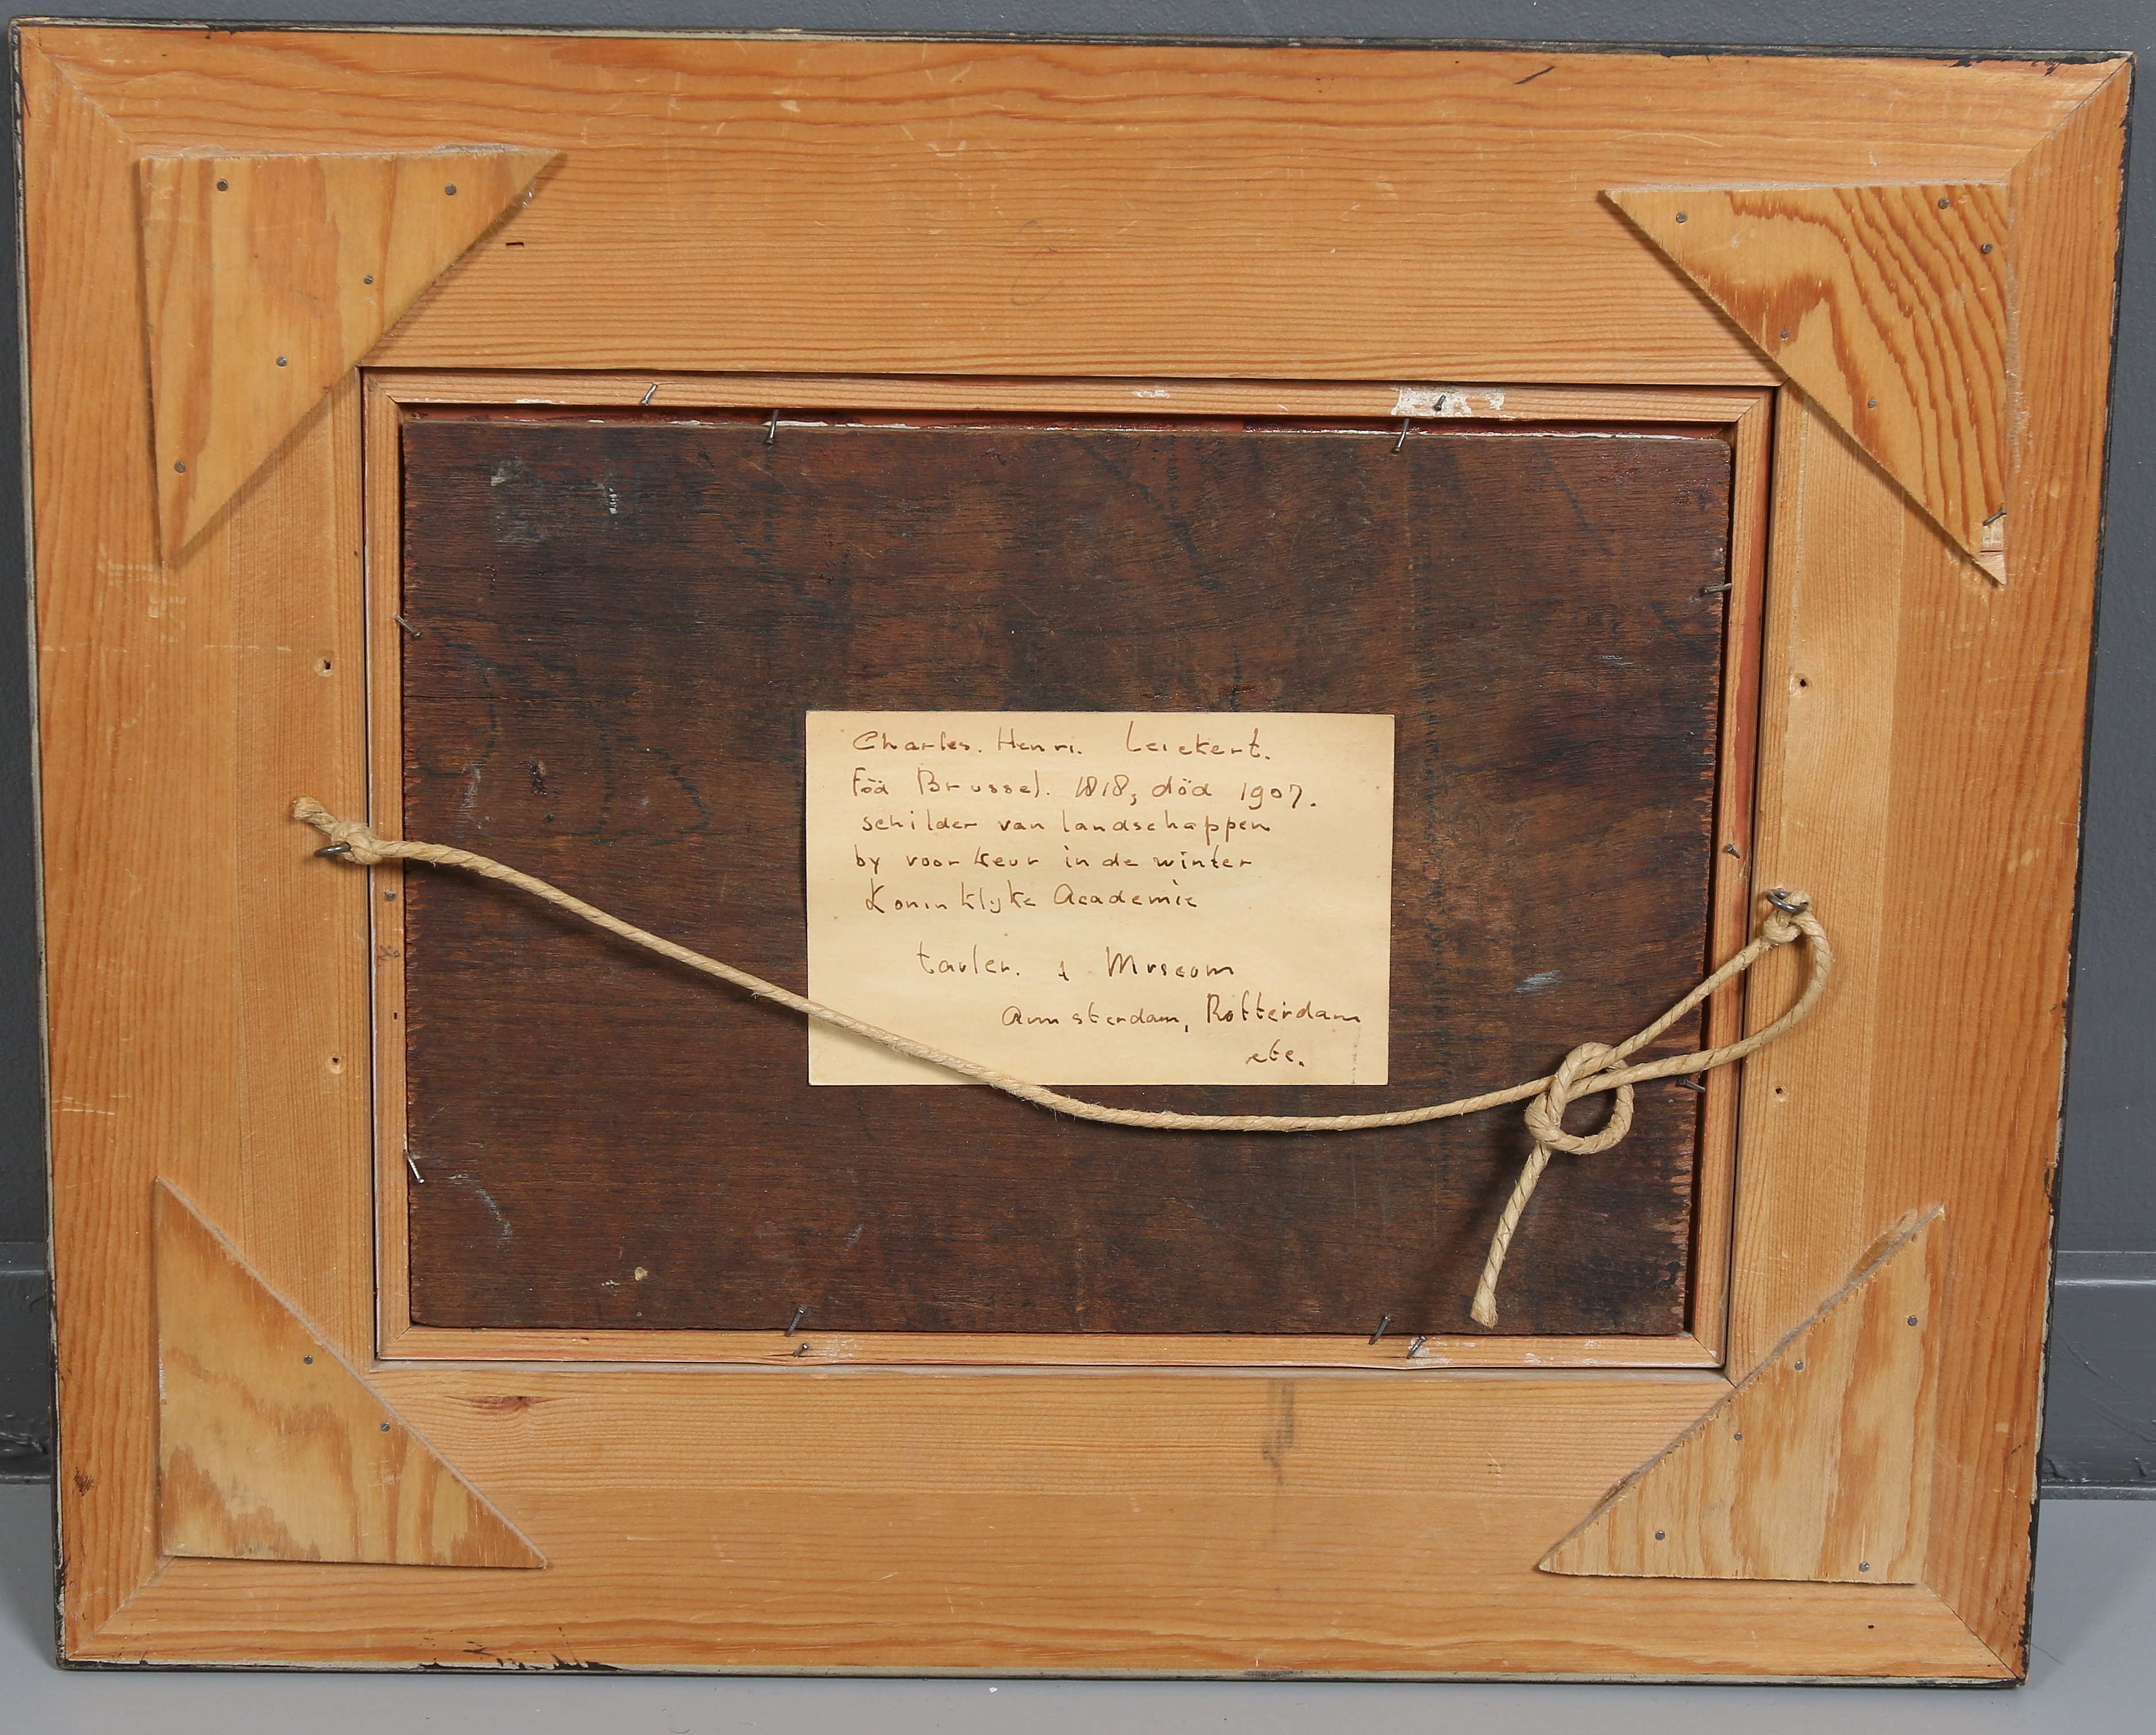 Charles. Henri. Leickert.
Föd Brussel. 1818, död 1907.
schilder van landschappen
by voorkeur in de winter
Koninklijke Academie
tavler. i Museom
Amsterdam, Rotterdam
etc.